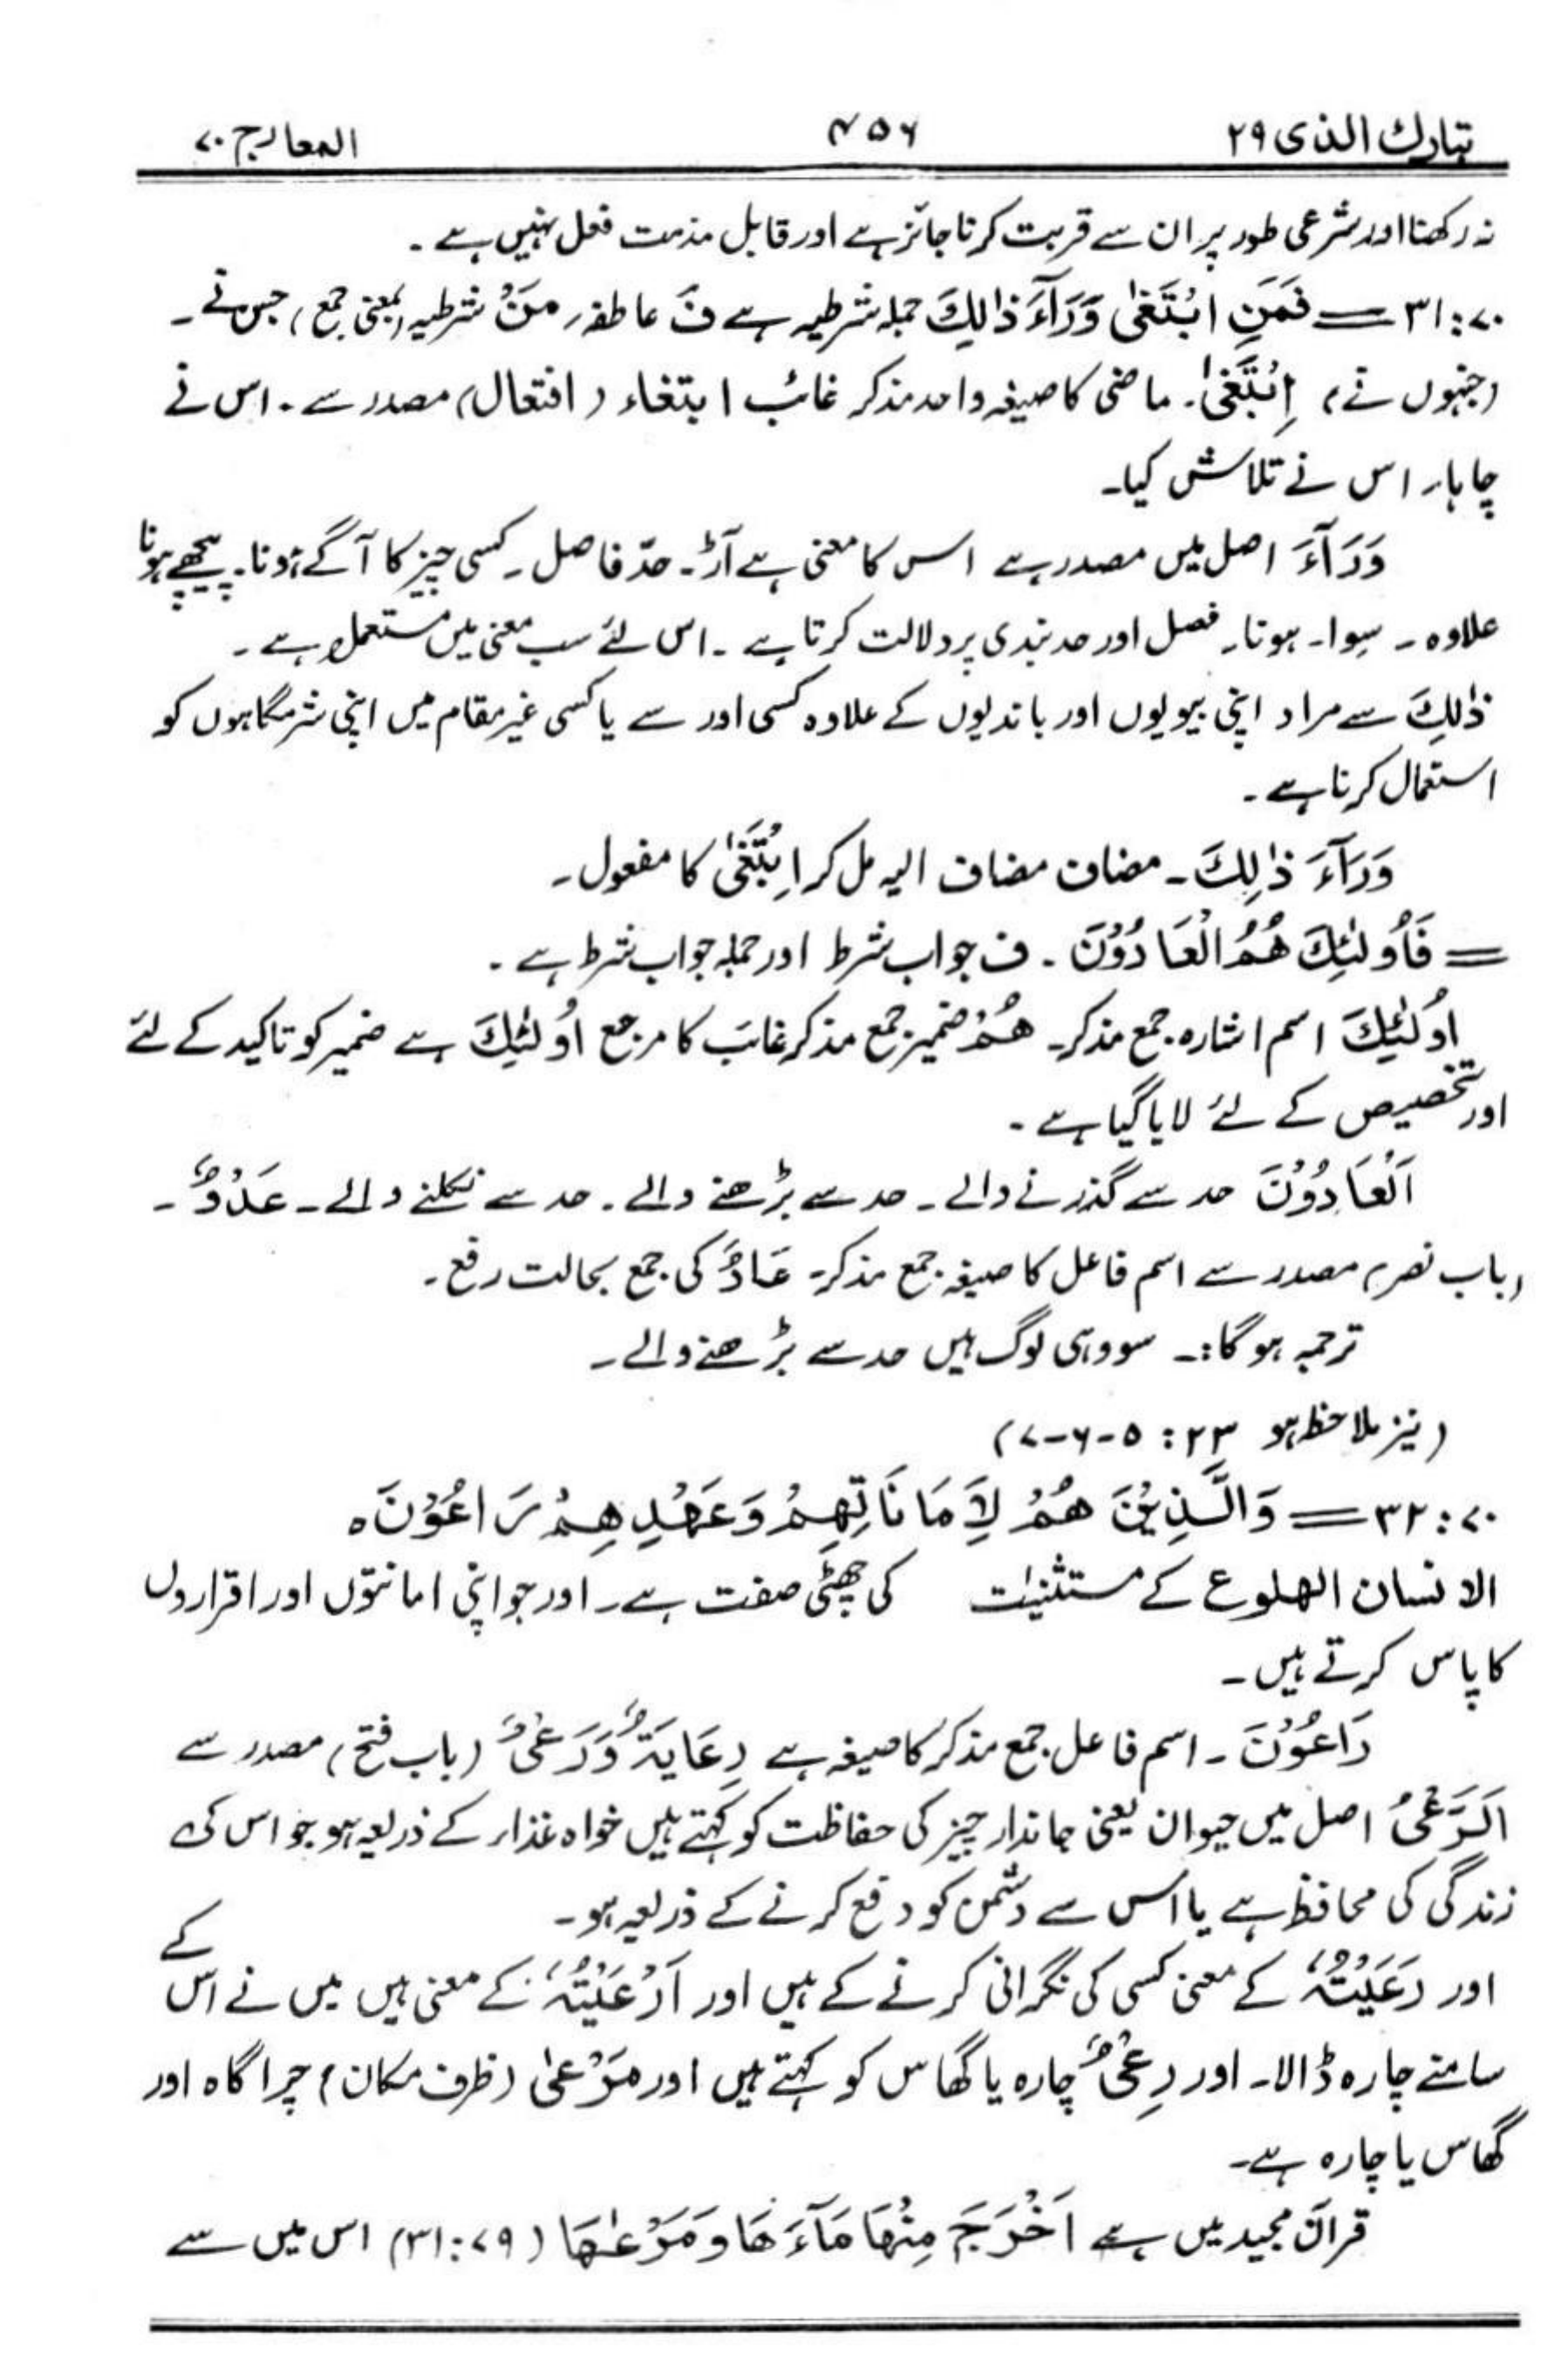 تبارك الذی ۲۹ ۴۵۶ المعارج ۷۰
نہ رکھنا اور شرعی طور پر ان سے قربت کرنا جائز ہے اور قابل مذمت فعل نہیں ہے ۔
۷۰: ۳۱ = فَمَنِ ابْتَغٰی وَرَآءَ ذٰالِكَ جملہ شرطیہ ہے فَ عاطفہ، مَنْ شرطیہ (بمعنی جمع) جس نے ۔
(جنہوں نے) اِبْتَغٰی۔ ماضی کا صیغہ واحد مذکر غائب ابتغاء (افتعال) مصدر سے ۔ اس نے
چاہا، اس نے تلاش کیا۔
وَرَآءَ اصل میں مصدر ہے اس کا معنی ہے آڑ۔ حدّ فاصل ۔ کسی چیز کا آگے ہونا۔ پیچھے ہونا
علاوہ ۔ سِوا۔ ہونا۔ فصل اور حد بندی پر دلالت کرتا ہے ۔ اس لئے سب معنی میں مستعمل ہے ۔
ذٰلِكَ سے مراد اپنی بیویوں اور باندیوں کے علاوہ کسی اور سے یا کسی غیر مقام میں اپنی شرمگاہوں کو
استعمال کرنا ہے ۔
وَرَآءَ ذٰلِكَ ۔ مضاف مضاف الیہ مل کر اِبْتَغٰی کا مفعول ۔
= فَأُولٰئِكَ هُمُ الْعَادُوْنَ ۔ ف جواب شرط اور جملہ جواب شرط ہے ۔
اُولٰئِكَ اسم اشارہ جمع مذکر۔ هُمْ ضمیر جمع مذکر غائب کا مرجع اُولٰئِكَ ہے ضمیر کو تاکید کے لئے
اور تخصیص کے لئے لایا گیا ہے ۔
اَلْعَادُوْنَ حد سے گذرنے والے ۔ حد سے بڑھنے والے ۔ حد سے نکلنے والے ۔ عَدْوٌ ۔
(باب نصر) مصدر سے اسم فاعل کا صیغہ جمع مذکر۔ عَادٌ کی جمع بحالت رفع ۔
ترجمہ ہوگا:۔ سو وہی لوگ ہیں حد سے بڑھنے والے ۔
(نیز ملاحظہ ہو ۲۳: ۵-۶-۷)
۷۰: ۳۲ = وَالَّذِيْنَ هُمْ لِاَمَانَاتِهِمْ وَعَهْدِهِمْ رَاعُوْنَ ہ
الانسان الهلوع کے مستثنیات کی چھٹی صفت ہے ۔ اور جو اپنی امانتوں اور اقراروں
کا پاس کرتے ہیں ۔
رَاعُوْنَ ۔ اسم فاعل جمع مذکر کا صیغہ ہے رِعَايَةٌ وَرَعْیٌ (باب فتح) مصدر سے
اَلرَّعْیُ اصل میں حیوان یعنی جاندار چیز کی حفاظت کو کہتے ہیں خواہ غذاء کے ذریعہ ہو جو اس کی
زندگی کی محافظ ہے یا اس سے دشمن کو دفع کرنے کے ذریعہ ہو ۔
اور رَعَيْتُهٗ کے معنی کسی کی نگرانی کرنے کے ہیں اور اَرْعَيْتُهٗ کے معنی ہیں میں نے اس کے
سامنے چارہ ڈالا۔ اور رِعْیٌ چارہ یا گھاس کو کہتے ہیں اور مَرْعٰی (ظرف مکان) چراگاہ اور
گھاس یا چارہ ہے۔
قرآن مجید میں ہے اَخْرَجَ مِنْهَا مَآءَهَا وَمَرْعٰهَا (۷۹: ۳۱) اس میں سے